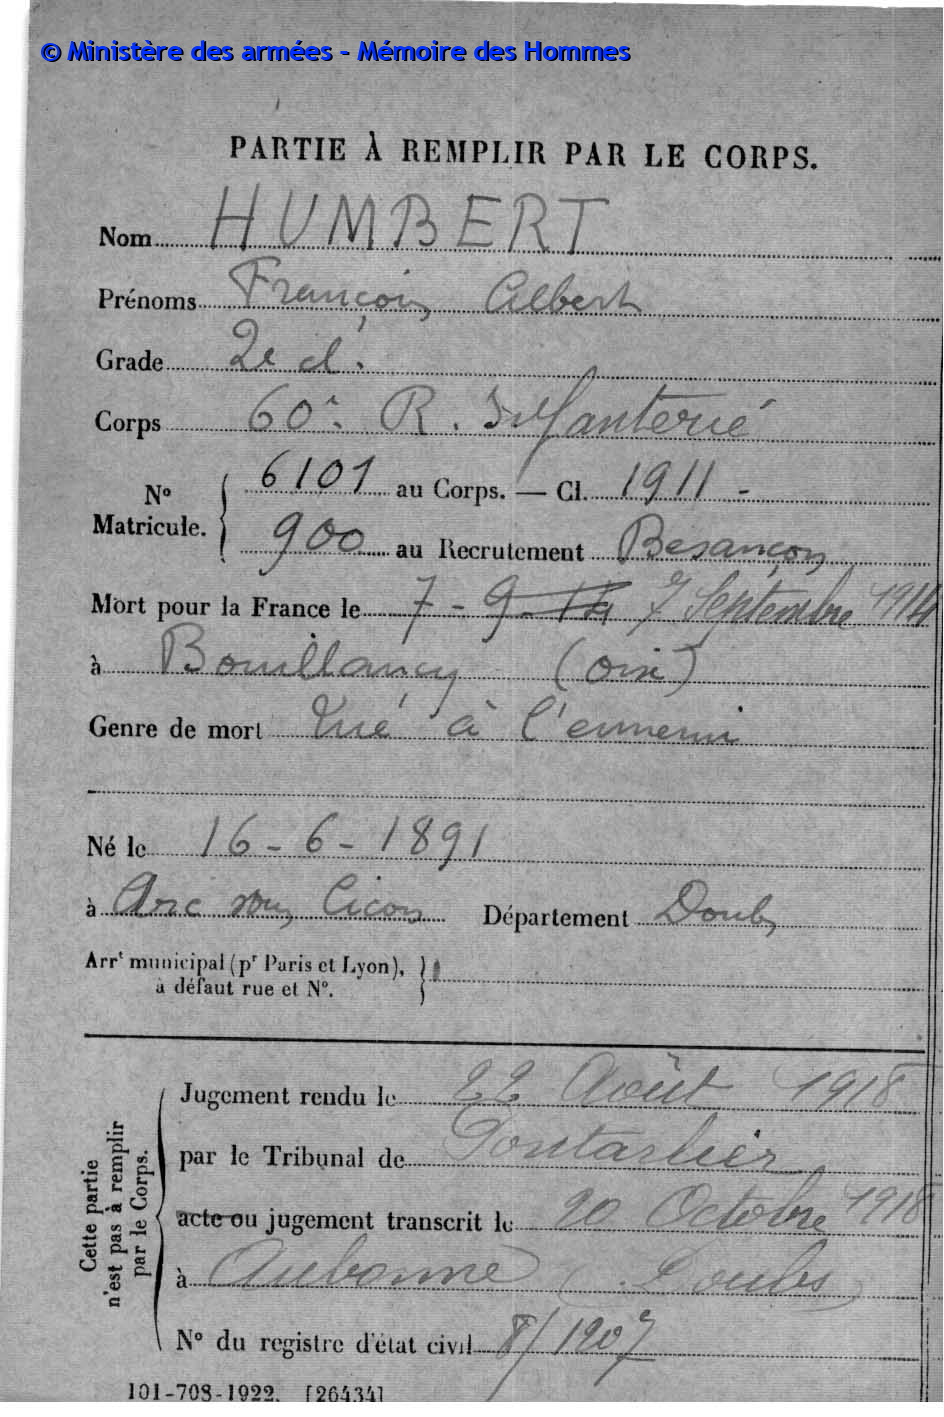 © Ministère des armées - Mémoire des Hommes
PARTIE À REMPLIR PAR LE CORPS.
Nom HUMBERT
Prénoms François Albert
Grade 2e cl.
Corps 60e R. Infanterie
N° Matricule. 6101 au Corps. — Cl. 1911 -
900 au Recrutement Besançon
Mort pour la France le 7 - 9 - 14 7 Septembre 1914
à Bouillancy (Oise)
Genre de mort Tué à l'ennemi
Né le 16 - 6 - 1891
à Arc sous Cicon Département Doubs
Arrt municipal (pr Paris et Lyon),
à défaut rue et N°.
Cette partie
n'est pas à remplir
par le Corps.
Jugement rendu le 22 Août 1918
par le Tribunal de Pontarlier
acte ou jugement transcrit le 20 Octobre 1918
à Aubonne (Doubs)
N° du registre d'état civil 8/1207
101-708-1922. [26434]